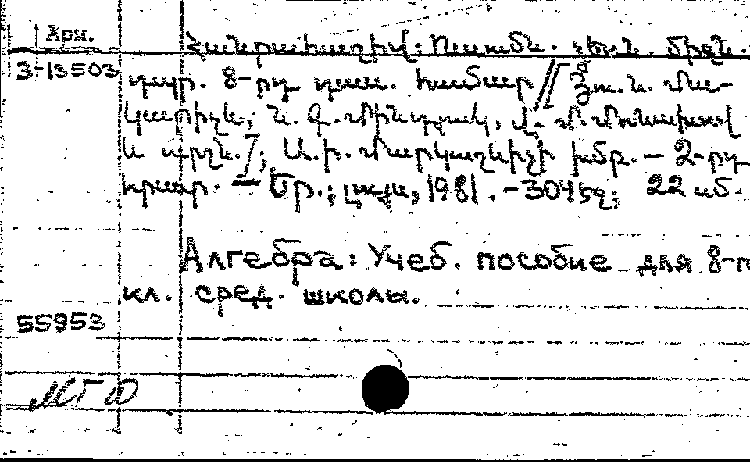 Հրմ.
3-13503
Հանրահաշիվ: Ուսումն. ձեռն. միջն.
դպր. 8-րդ դաս. համար // Յու. Ն. Մա-
կարիչև, Ն. Գ. Մինդյուկ,
և ուրշ.]; Ա. Ի. Մարկուշևիչի խմբ. — 2-րդ
հրատ. — Եր.: Լույս, 1981. - 304 էջ; 22 սմ.
Алгебра: Учеб. пособие для 8-г
кл. сред. школы.
55953